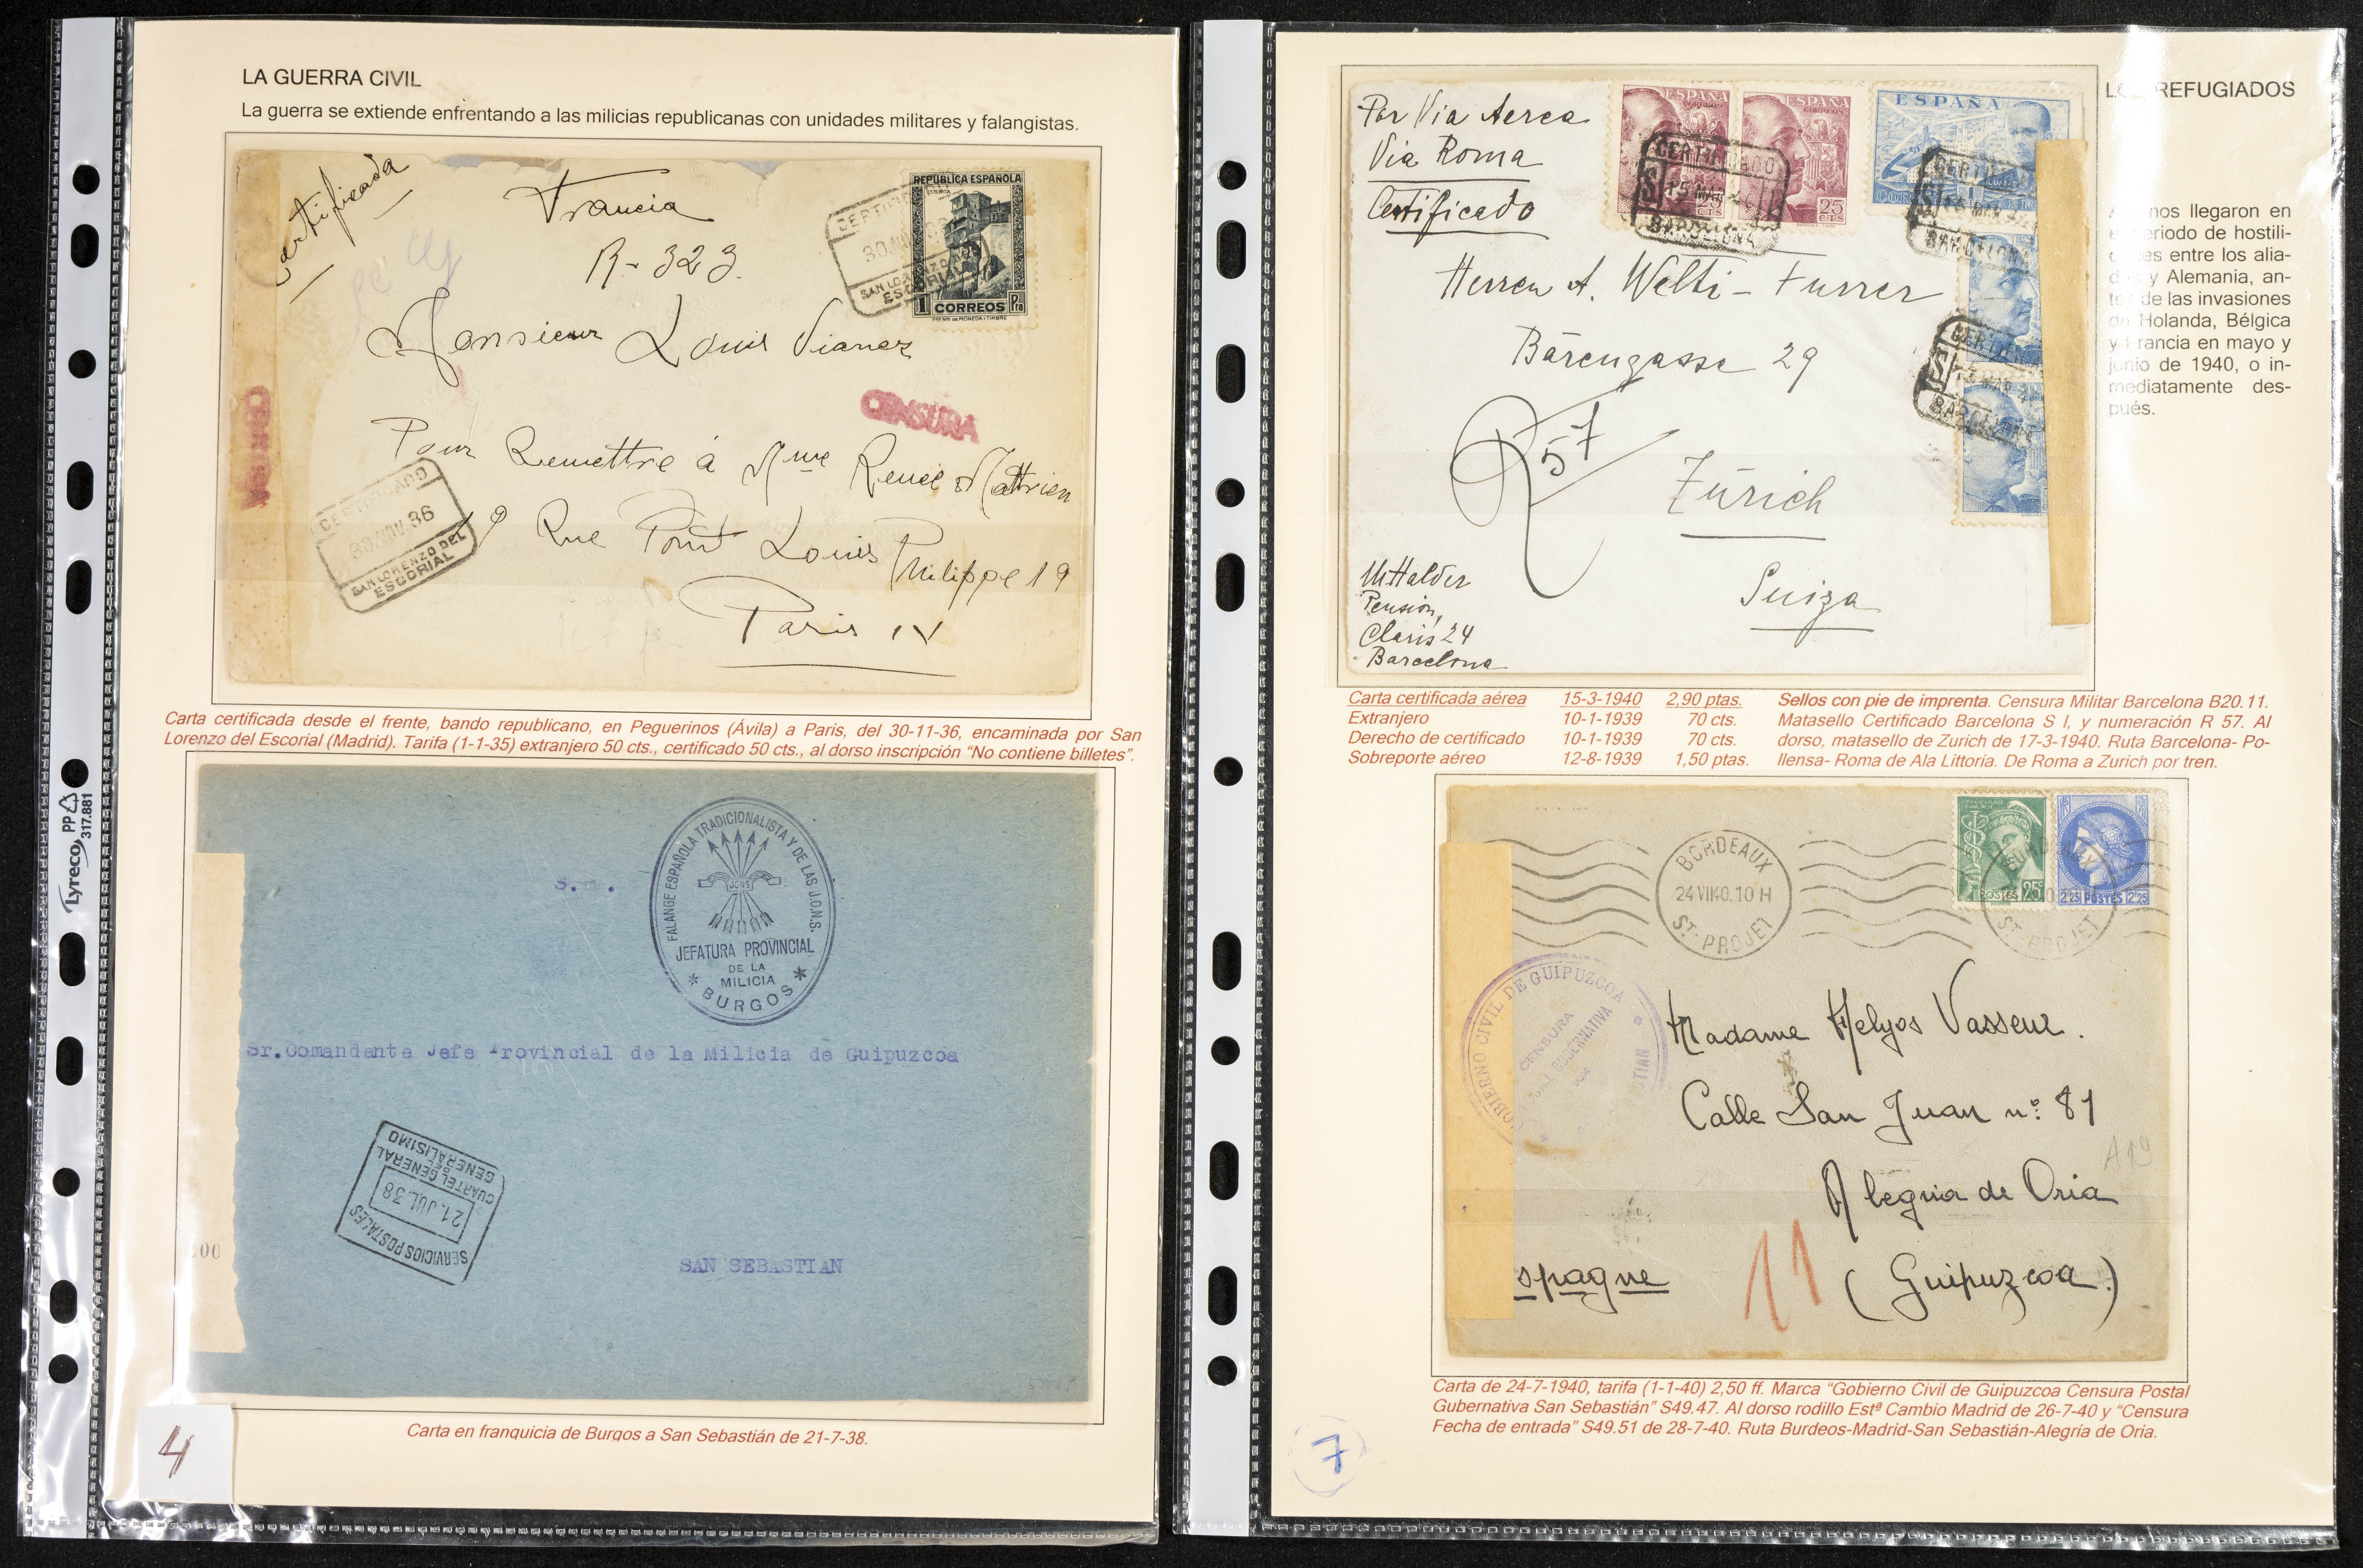 LA GUERRA CIVIL
La guerra se extiende enfrentando a las milicias republicanas con unidades militares y falangistas.
Certificada
Francia
R - 323.
REPUBLICA ESPAÑOLA
1 CORREOS Pta
CERTIFICADO
30 NOV
SAN LORENZO DEL
ESCORIAL
Monsieur Louis Vianez
CENSURA
CENSURA
Pour Remettre á Mme Reneé Mattrien
9 Rue Pont Louis Philippe 19
Paris IV
CERTIFICADO
30 NOV. 36
SAN LORENZO DEL
ESCORIAL
Carta certificada desde el frente, bando republicano, en Peguerinos (Ávila) a Paris, del 30-11-36, encaminada por San
Lorenzo del Escorial (Madrid). Tarifa (1-1-35) extranjero 50 cts., certificado 50 cts., al dorso inscripción "No contiene billetes".
FALANGE ESPAÑOLA TRADICIONALISTA Y DE LAS J.O.N.S.
JONS
JEFATURA PROVINCIAL
DE LA
MILICIA
* BURGOS *
Sr. Comandante Jefe Provincial de la Milicia de Guipuzcoa
SERVICIOS POSTALES
21. JUL. 38
CUARTEL GENERAL
DEL
GENERALISIMO
SAN SEBASTIAN
Carta en franquicia de Burgos a San Sebastián de 21-7-38.
4
Lyreco PP 317.881
REFUGIADOS
nos llegaron en
periodo de hostili-
es entre los alia-
y Alemania, an-
de las invasiones
de Holanda, Bélgica
y Francia en mayo y
junio de 1940, o in-
mediatamente des-
pués.
Por Via Aerea
Via Roma
Certificado
ESPAÑA
CORREOS
25 CTS
ESPAÑA
CORREOS
25 CTS
ESPAÑA
CERTIFICADO
15 MAR
BARCELONA
Herren A. Welti - Furrer
Bärengasse 29
R 57
Zürich
Suiza
M Halder
Pension,
Claris 24
Barcelona
Carta certificada aérea 15-3-1940 2,90 ptas.
Extranjero 10-1-1939 70 cts.
Derecho de certificado 10-1-1939 70 cts.
Sobreporte aéreo 12-8-1939 1,50 ptas.
Sellos con pie de imprenta. Censura Militar Barcelona B20.11.
Matasello Certificado Barcelona S I, y numeración R 57. Al
dorso, matasello de Zurich de 17-3-1940. Ruta Barcelona- Po-
llensa- Roma de Ala Littoria. De Roma a Zurich por tren.
BORDEAUX
24 VII 40. 10 H
ST. PROJET
POSTES 25c
2f25 POSTES 2f25
GOBIERNO CIVIL DE GUIPUZCOA
CENSURA
GUBERNATIVA
Madame Helyos Vasseur.
Calle San Juan nº: 81
A19
Alegria de Oria
spagne
11
(Guipuzcoa.)
Carta de 24-7-1940, tarifa (1-1-40) 2,50 ff. Marca "Gobierno Civil de Guipuzcoa Censura Postal
Gubernativa San Sebastián" S49.47. Al dorso rodillo Estª Cambio Madrid de 26-7-40 y "Censura
Fecha de entrada" S49.51 de 28-7-40. Ruta Burdeos-Madrid-San Sebastián-Alegría de Oria.
7